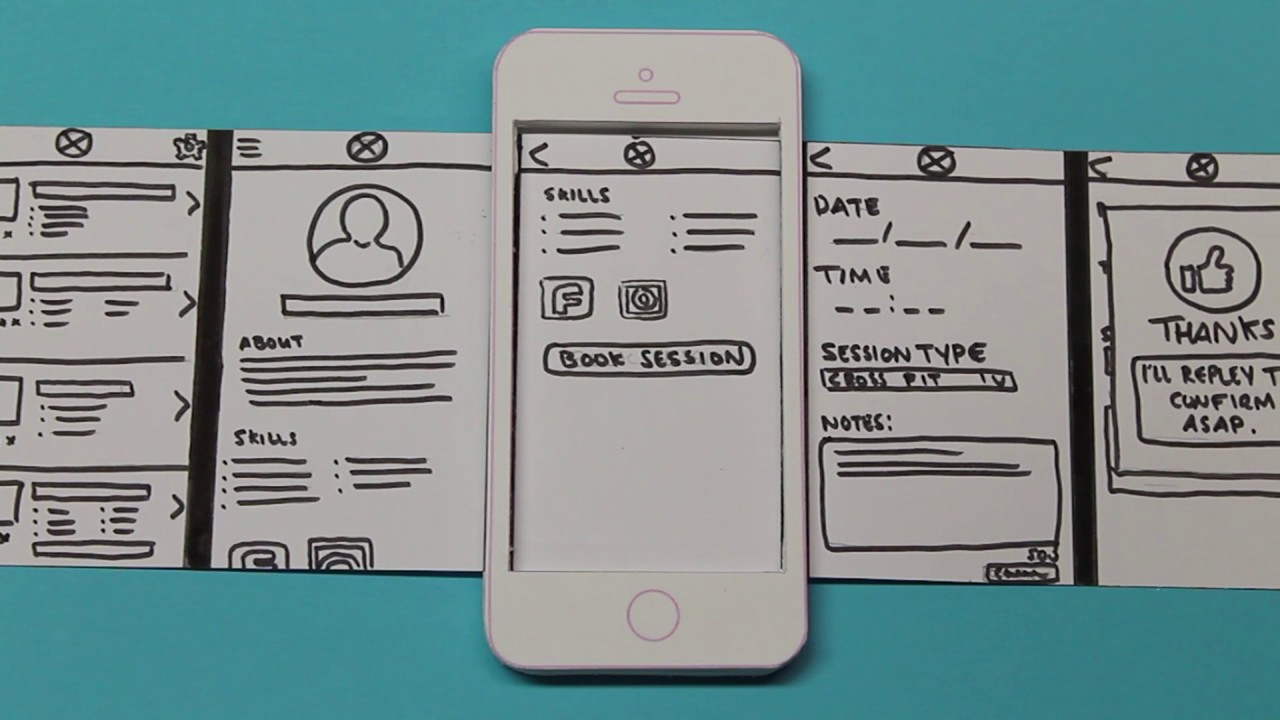 ABOUT
SKILLS
SKILLS
F
BOOK SESSION
DATE
TIME
SESSION TYPE
CROSS FIT
NOTES:
THANKS
I'LL REPLEY T
CONFIRM
ASAP.